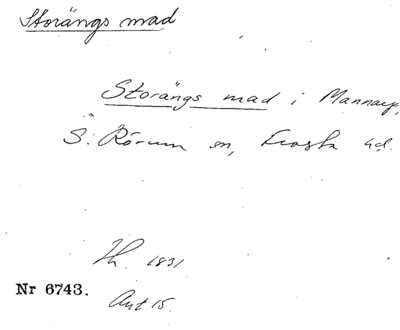 Storängs mad
Storängs mad i Mannarp,
S. Rörum sn, Frosta hd.
Th. 1831
Nr 6743.
Akt 15.